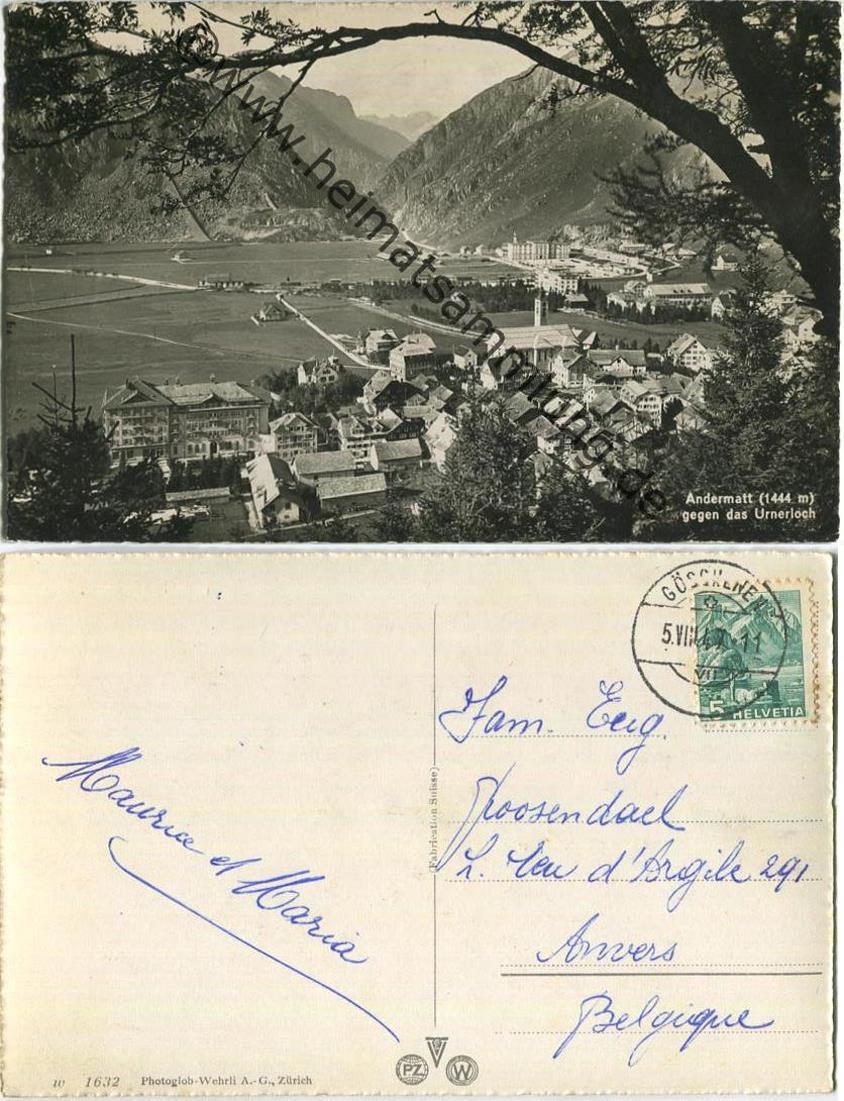 ©www.heimatsammlung.de
Andermatt (1444 m)
gegen das Urnerloch
GÖSCHENEN
5.VIII.47-11
5 HELVETIA
Maurice et Maria
(Fabrication Suisse)
Fam. Eug.
Roosendael
d'Argile 291
Anvers
Belgique
w 1632 Photoglob-Wehrli A.-G., Zürich
PZ W